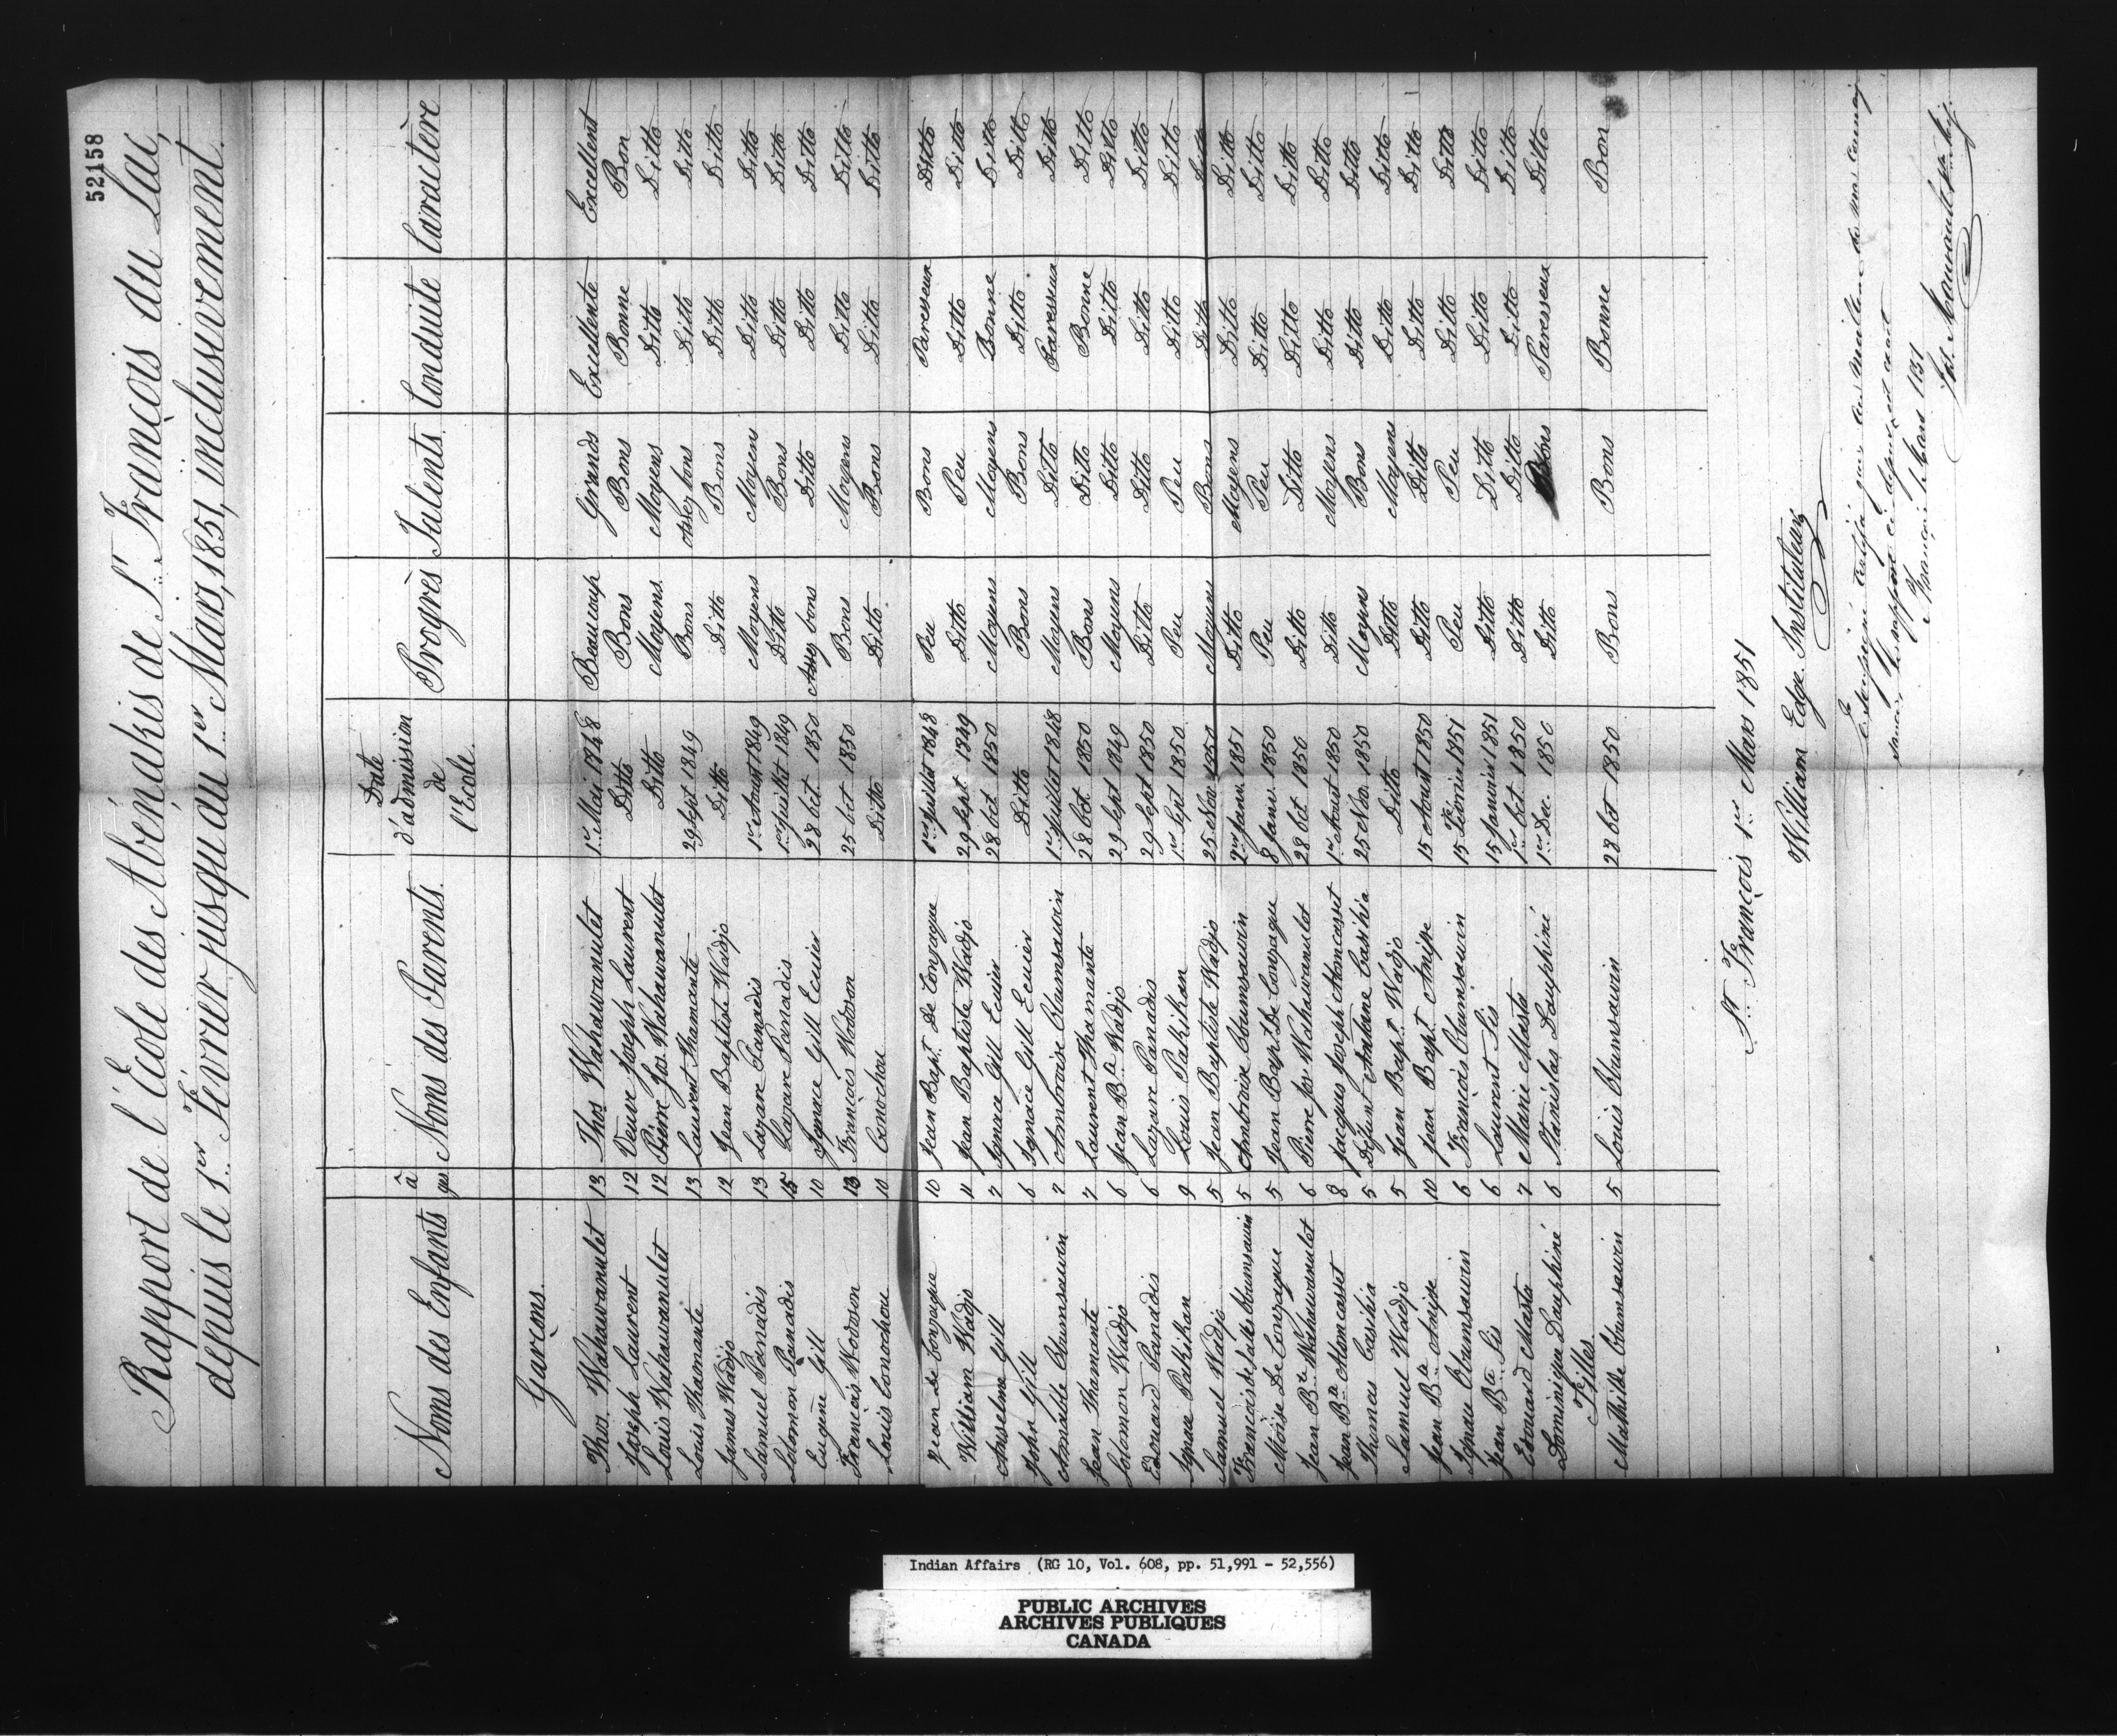 52158
Rapport de l'École des Abénakis de St. François du Lac,
depuis le 1er Février jusqu'au 1er Mars, 1851, inclusivement.
Noms des Enfants âges Noms des Parents. Date d'admission de l'Ecole. Progrès Talents Conduite Caractère
Garçons.
Thos. Wahawanulet 13 Thos Wahawanulet 1er Mai 1848 Beaucoup Grands Excellente Excellent
Joseph Laurent 12 Veuve Joseph Laurent Ditto Bons Bons Bonne Bon
Louis Wahawanulet 12 Pièrre Jos. Wahawanulet Ditto Moyens. Moyens Ditto Ditto
Louis Thamante 13 Laurent Thamante 29 Sept 1849 Bons Assez bons Ditto Ditto
James Wadjo 12 Jean Baptiste Wadjo Ditto Ditto Bons Ditto Ditto
Samuel Panadis 13 Lazare Panadis 1er Aoust 1849 Moyens Moyens Ditto Ditto
Solomon Panadis 15 Lazare Panadis 1er Juillet 1849 Ditto Bons Ditto Ditto
Eugène Gill 10 Ignace Gill Ecuier 28 Oct 1850 Assez bons Ditto Ditto Ditto
Francois Wodoson 13 François Wodoson 25 Oct 1850 Bons Moyens Ditto Ditto
Louis Conochou 10 Conochou Ditto Ditto Bons Ditto Ditto
Jean De Gonzague 10 Jean Bapt. De Gonzague 1er Juillet 1848 Peu Bons Paresseux Ditto
William Wadjo 11 Jean Baptiste Wadjo 29 Sept 1849 Ditto Peu Ditto Ditto
Anselme Gill 7 Ignace Gill Ecuier 28 Oct 1850 Moyens Moyens Bonne Ditto
John Gill 6 Ignace Gill Ecuier Ditto Bons Bons Ditto Ditto
Amable Obumsawin 7 Ambroise Obumsawin 1er Juillet 1848 Moyens Ditto Paresseux Ditto
Jean Thamante 7 Laurent Thamante 28 Oct. 1850 Bons Ditto Bonne Ditto
Solomon Wadjo 6 Jean Bte Wadjo 29 Sept 1849 Moyens Ditto Ditto Ditto
Edouard Panadis 6 Lazare Panadis 29 Sept 1850 Ditto Ditto Ditto Ditto
Ignace Pakikan 9 Louis Pakikan 1er Sept 1850 Peu Peu Ditto Ditto
Samuel Wadjo 5 Jean Baptiste Wadjo 25 Nov 1850 Moyens Bons Ditto Ditto
Francois de Salles Obumsawin 5 Ambroise Obumsawin Janv. 1851 Ditto Moyens Ditto Ditto
Moïse De Gonzague 5 Jean Bapt. De Gonzague 8 Janv. 1850 Peu Peu Ditto Ditto
Jean Bte Wahawanulet 6 Pierre Jos Wahawanulet 28 Oct 1850 Ditto Ditto Ditto Ditto
Jean Bte Atomcasset 8 Jacques Joseph Atomcasset 1er Aoust 1850 Ditto Moyens Ditto Ditto
Thomas Casihia 5 Défunt Antoine Casihia 25 Nov. 1850 Moyens Bons Ditto Ditto
Samuel Wadjo 5 Jean Bapt. Wadjo Ditto Ditto Moyens Ditto Ditto
Jean Bte Anise 10 Jean Bapt Anise 15 Aoust 1850 Ditto Ditto Ditto Ditto
Ignace Obumsawin 6 François Obumsawin 15 Fevrier 1851 Peu Peu Ditto Ditto
Jean Bte Sis 6 Laurent Sis 15 Janvier 1851 Ditto Ditto Ditto Ditto
Edouard Masta 7 Marie Masta 1er Oct 1850 Ditto Ditto Ditto Ditto
Dominique Dauphiné 6 Stanislas Dauphiné 1er Dec. 1850 Ditto Bons Paresseux Ditto
Filles
Mathilde Obumsawin 5 Louis Obumsawin 28 Oct 1850 Bons Bons Bonne Bon
St. François 1er Mars 1851
William Edge. Instituteur
Je soussigné certifie qu'au meilleur de ma connais
sance le rapport ci-dessus est exact
St François le Mars 1851
Jos. Maurault
Indian Affairs (RG 10, Vol. 608, pp. 51,991 - 52,556)
PUBLIC ARCHIVES
ARCHIVES PUBLIQUES
CANADA